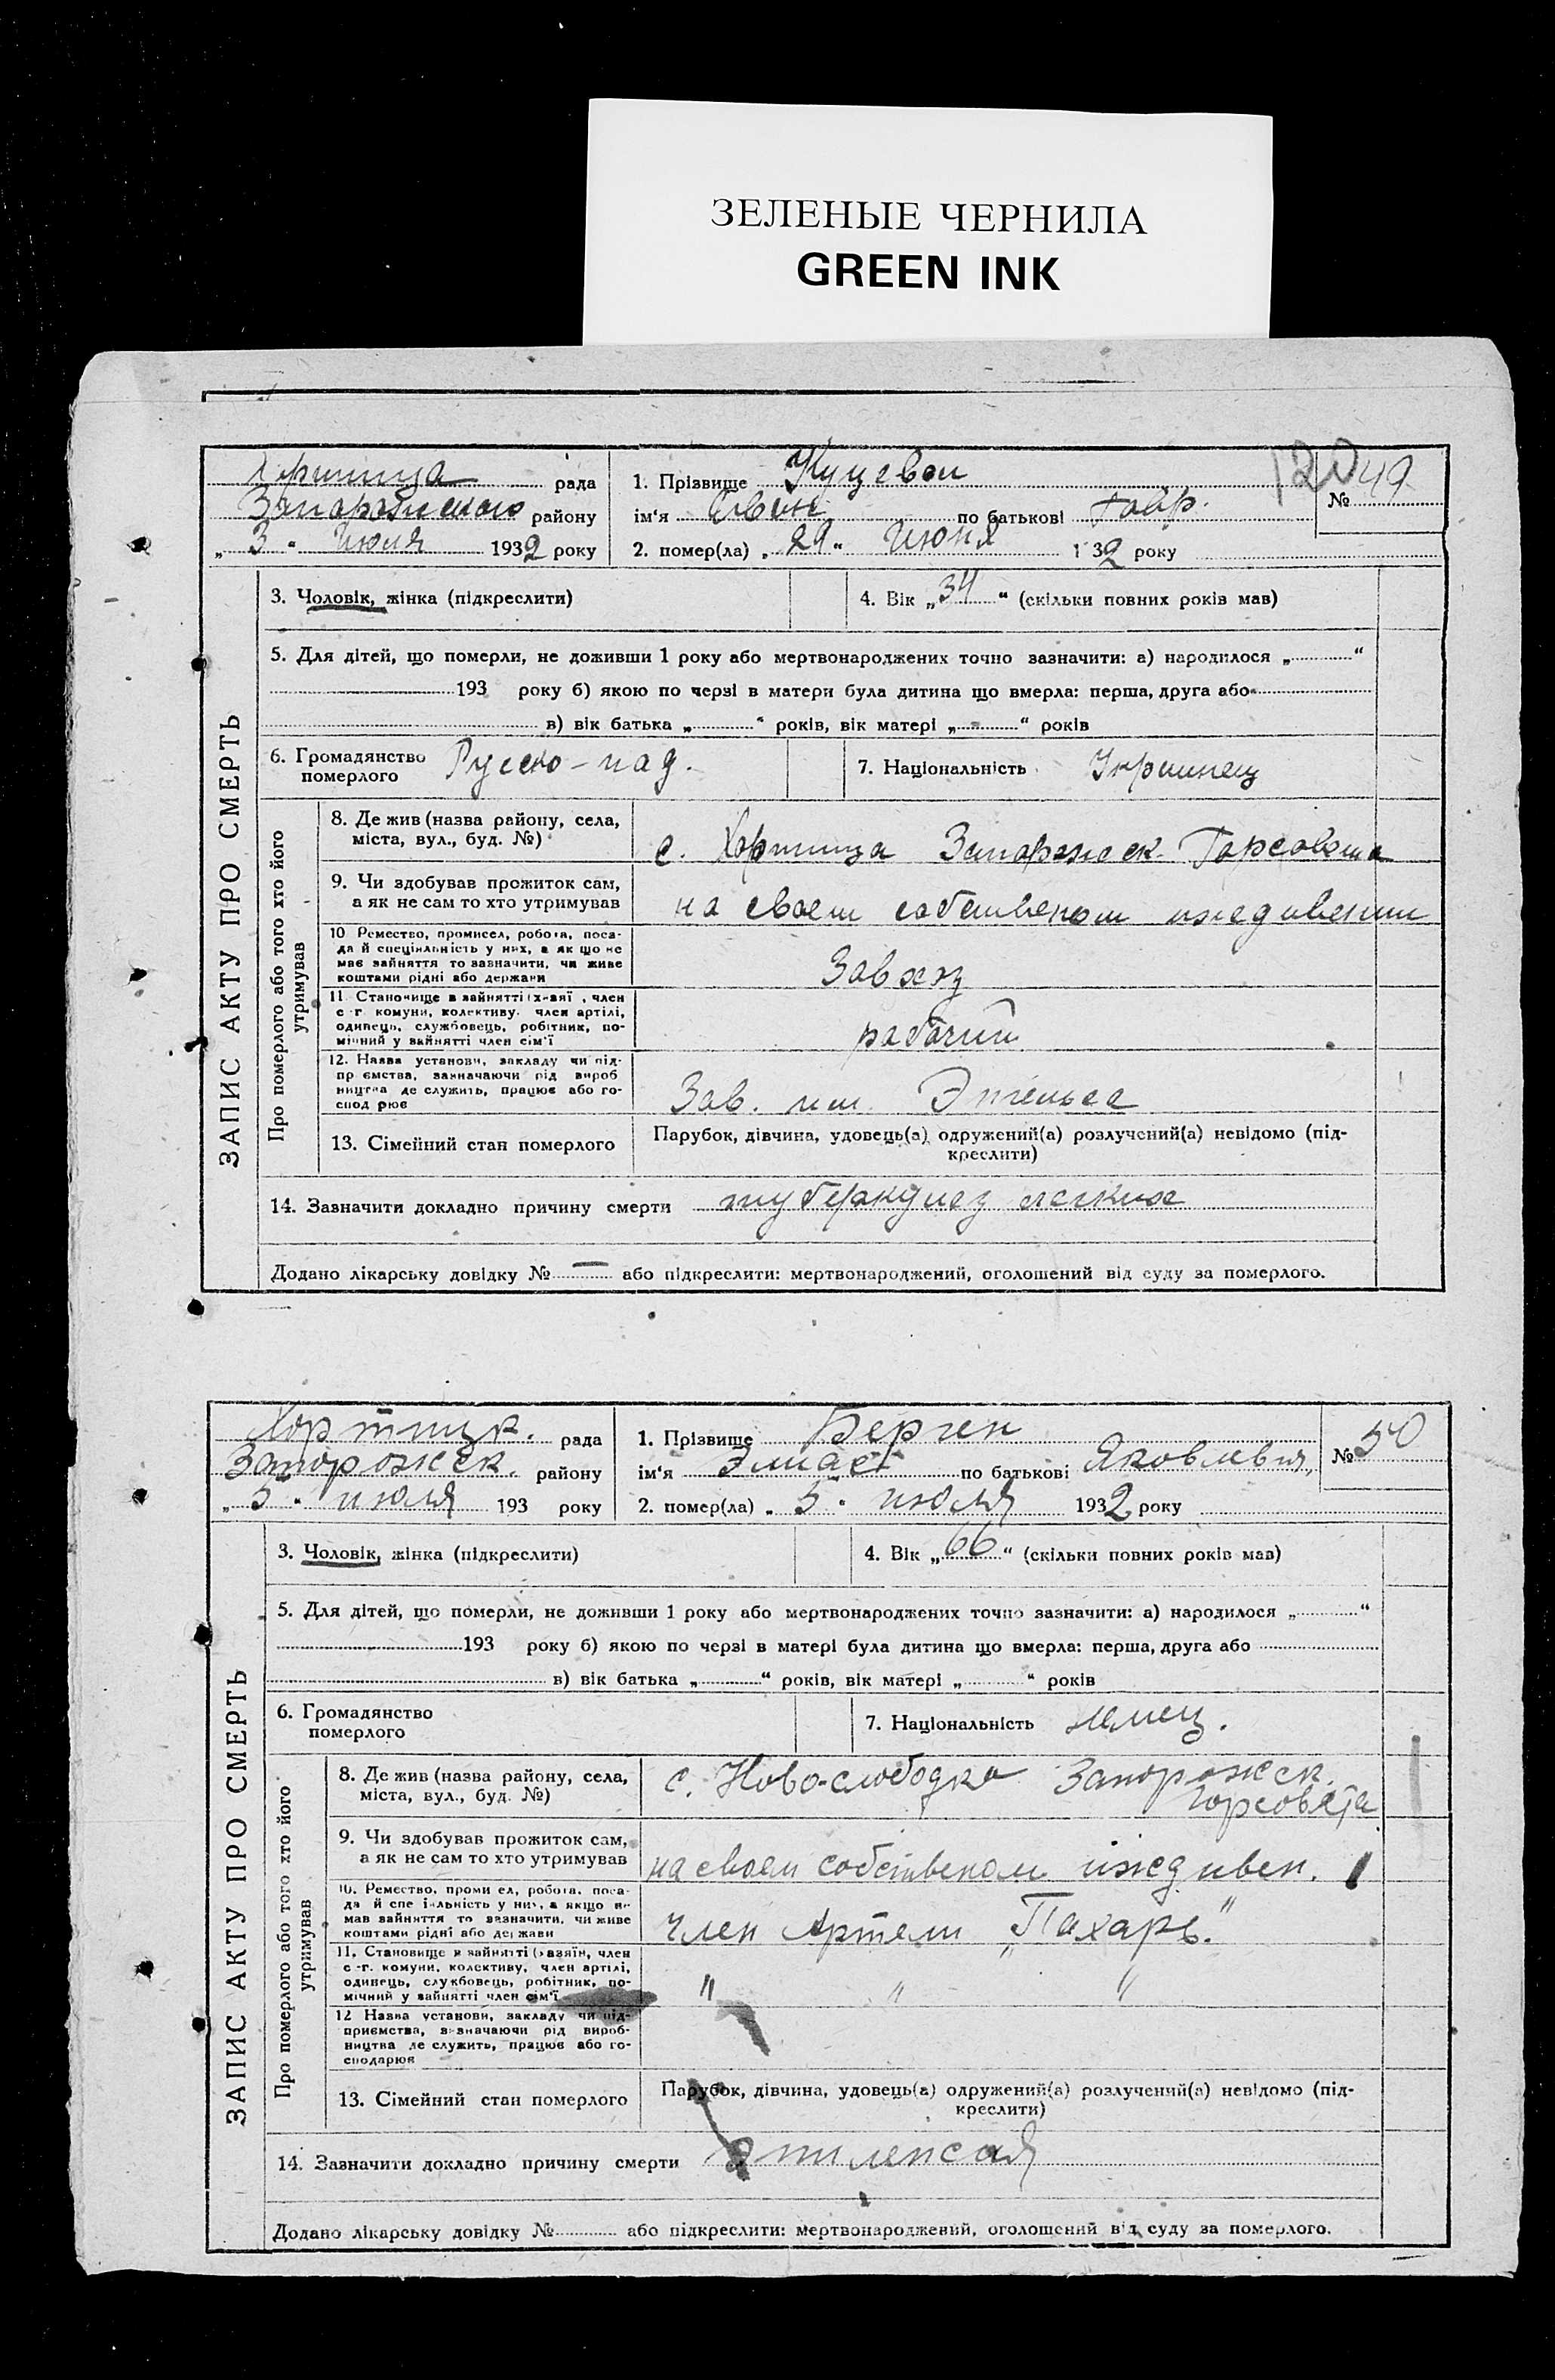 ЗЕЛЕНЫЕ ЧЕРНИЛА
GREEN INK
120
Хортица рада
Запорожского району
„ 3 " июля 1932 року
1. Прізвище Куцевол
ім'я Иван по батькові Гавр.
№ 49
2. помер(ла) „ 29 " июня 1 32 року
ЗАПИС АКТУ ПРО СМЕРТЬ
3. Чоловік, жінка (підкреслити)
4. Вік „ 34 " (скільки повних років мав)
5. Для дітей, що померли, не доживши 1 року або мертвонароджених точно зазначити: а) народилося „ "
193 року б) якою по черзі в матери була дитина що вмерла: перша, друга або
в) вік батька „ " років, вік матері „ " років
6. Громадянство померлого Русско-под.
7. Національність Украинец
Про померлого або того хто його утримував
8. Де жив (назва району, села,
міста, вул., буд. №)
с. Хортица Запорожск. Горсовета
9. Чи здобував прожиток сам,
а як не сам то хто утримував
на своем собственом иждивении
10 Ремество, промисел, робота, поса-
да й спеціяльність у них, а як що не
має зайняття то зазначити, чи живе
коштами рідні або держави
Завхоз
11. Становище в зайнятті (х-зяї , член
с-г комуни, колективу, член артілі,
одинець, службовець, робітник, по-
мічний у зайнятті член сім'ї
рабочий
12. Назва установи, закладу чи під-
пр ємства, зазначаючи рід вироб
ництва де служить, працює або го-
спод рює
Зав. им. Энгельса
13. Сімейний стан померлого
Парубок, дівчина, удовець(а) одружений(а) розлучений(а) невідомо (під-
креслити)
14. Зазначити докладно причину смерти туберкулез легких
Додано лікарську довідку № — або підкреслити: мертвонароджений, оголошений від суду за померлого.
Хортицк. рада
Запорожск. району
„ 5 " июля 193 року
1. Прізвище Берген
ім'я по батькові Яковлевич,
№ 50
2. помер(ла) „ 5 " июля 1932 року
ЗАПИС АКТУ ПРО СМЕРТЬ
3. Чоловік, жінка (підкреслити)
4. Вік „ 66 " (скільки повних років мав)
5. Для дітей, що померли, не доживши 1 року або мертвонароджених точно зазначити: а) народилося „ "
193 року б) якою по черзі в матері була дитина що вмерла: перша, друга або
в) вік батька „ " років, вік матері „ " років
6. Громадянство
померлого
7. Національність немец.
Про померлого або того хто його утримував
8. Де жив (назва району, села,
міста, вул., буд. №)
с. Ново-слободка Запорожск.
Горсовета
9. Чи здобував прожиток сам,
а як не сам то хто утримував
на своем собственом иждивен.
10. Ремество, проми ел, робота, поса-
да й спе іяльність у них, а якщо не
мав зайняття то зазначити, чи живе
коштами рідні або держави
член Артели „Пахарь."
11. Становище в зайнятті (хазяїн, член
с-г. комуни, колективу, член артілі,
одинець, службовець, робітник, по-
мічний у зайнятті член сім'ї
" " "
12 Назва установи, закладу чи під-
приємства, зазначаючи рід вироб-
ництва де служить, працює або го-
сподарює
13. Сімейний стан померлого
Парубок, дівчина, удовець(а) одружений(а) розлучений(а) невідомо (під-
креслити)
14. Зазначити докладно причину смерти эпилепсая
Додано лікарську довідку № або підкреслити: мертвонароджений, оголошений від суду за померлого.